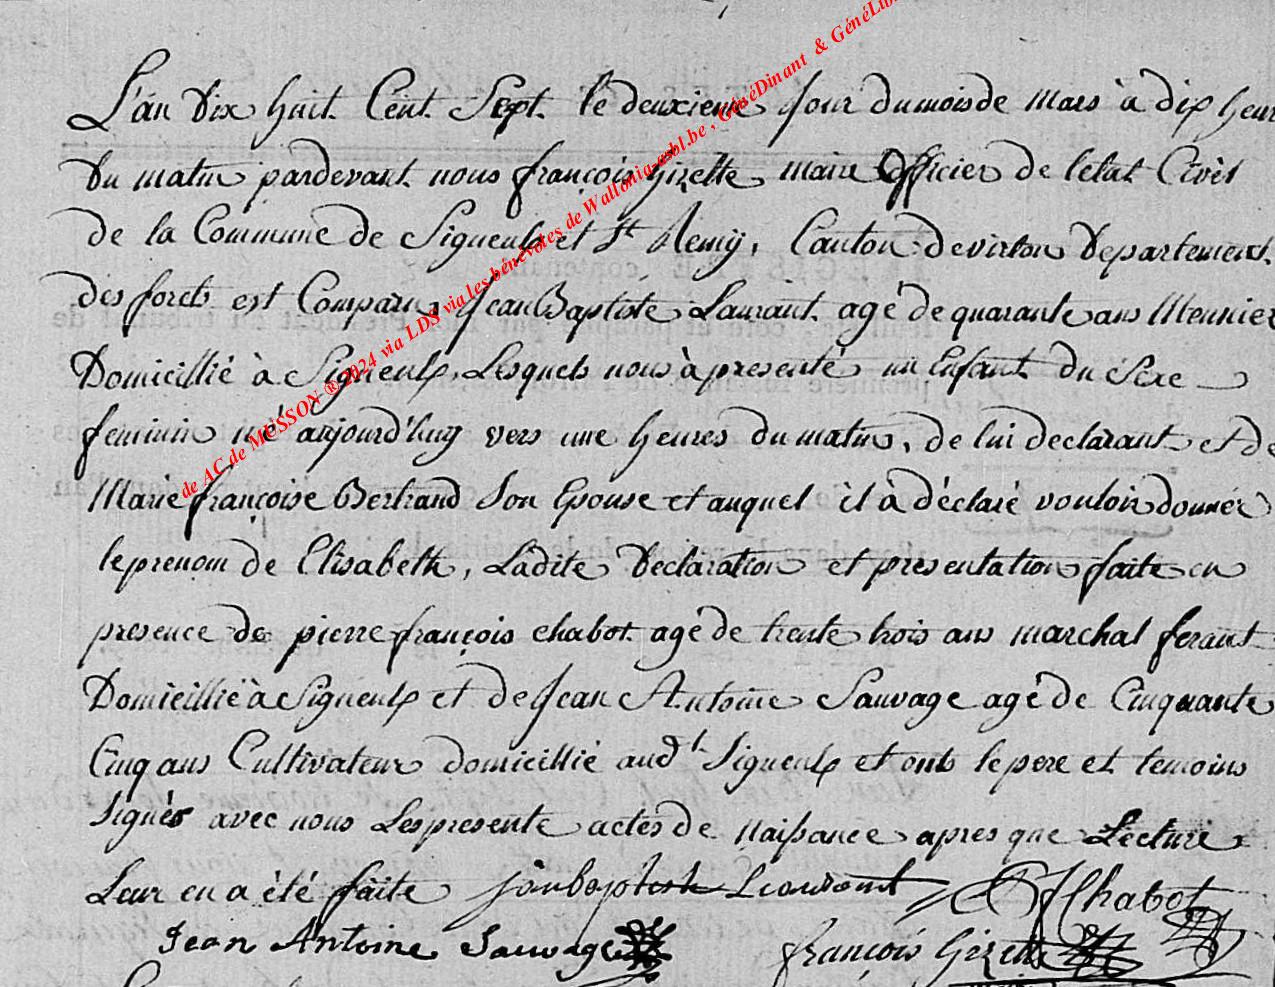 L'an Dix huit Cent Sept le deuxieme Jour du mois de mars à dix heur
Du matin pardevant nous françois Gizette maire Officier de l'etat Civil
de la Commune de Signeulx et St Remÿ, Canton de virton Departement
des forets est Comparu Jean Baptiste Laurant agé de quarante ans Meunier
Domicillié à Signeulx, Lesquels nous à presenté un Enfant du Sexe
feminin né aujourd'huy vers une heures du matin, de lui declarant et de
Marie françoise Bertrand Son Epouse et auquel il à déclaré vouloir donner
le prenom de Elisabeth, Ladite Declaration et presentation faite en
presence de pierre françois chabot agé de trente trois ans marchal ferant
Domicillié à Signeulx et de Jean Antoine Sauvage agé de Cinquante
Cinq ans Cultivateur domicillié audt Signeulx et onts le pere et temoins
Signés avec nous Les presente actes de naissance apres que Lecture
Leur en a été faite janbaptiste Leaurant Chabot
Jean Antoine Sauvage françois Gizette
de AC de MUSSON ® 2024 via LDS via les bénévotes de Wallonia-asbl.be , GénéDinant & GénéLib